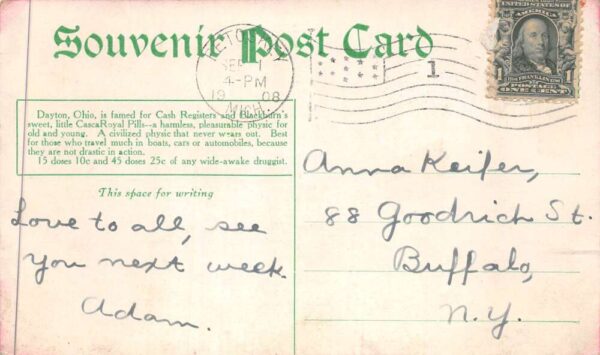 Souvenir Post Card
SEP 1
4-PM
1908
MICH.
1
UNITED STATES OF AMERICA
FRANKLIN
1 1
POSTAGE
ONE CENT
Dayton, Ohio, is famed for Cash Registers and Blackburn's
sweet, little CascaRoyal Pills--a harmless, pleasurable physic for
old and young. A civilized physic that never wears out. Best
for those who travel much in boats, cars or automobiles, because
they are not drastic in action.
15 doses 10c and 45 doses 25c of any wide-awake druggist.
This space for writing
Love to all, see
you next week.
Adam.
Anna Keifer,
88 Goodrich St.
Buffalo,
N.Y.